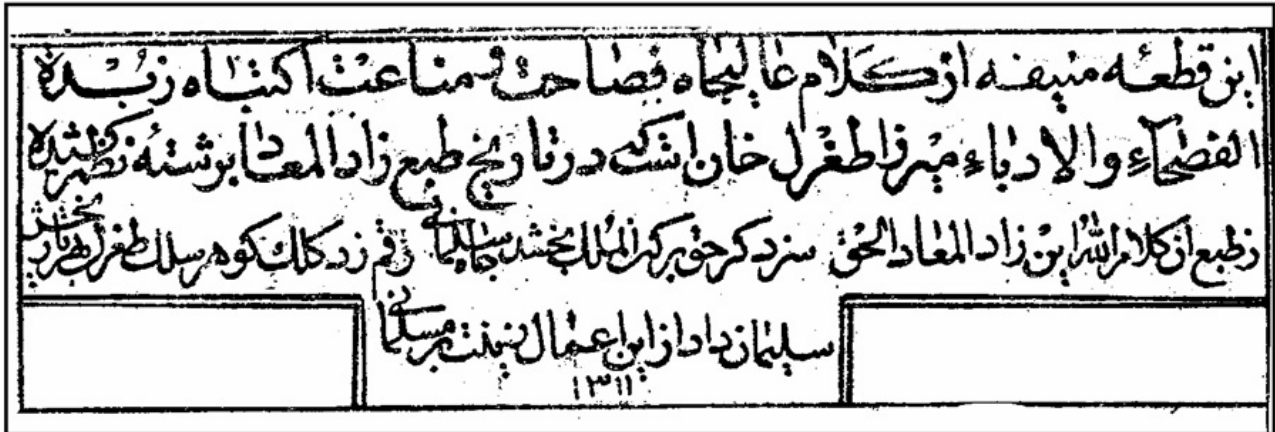 این قطعه منیفه از کلام عالیجاه فصاحت و مناعت اکتناه زبدة
الفصحاء والادباء میرزا طغرل خان است که در تاریخ طبع زاد المعاد برشته نظم کشیده
زطبع از کلام الله این زاد المعاد الحق سزد کر حق برکن الملک بخشد جاه سلمانی رقم زد کلک کوهر سلک طغرل بهر تاریخش
سلیمان داد از این اعمال زینت بر مسلمانی
۱۳۱۱